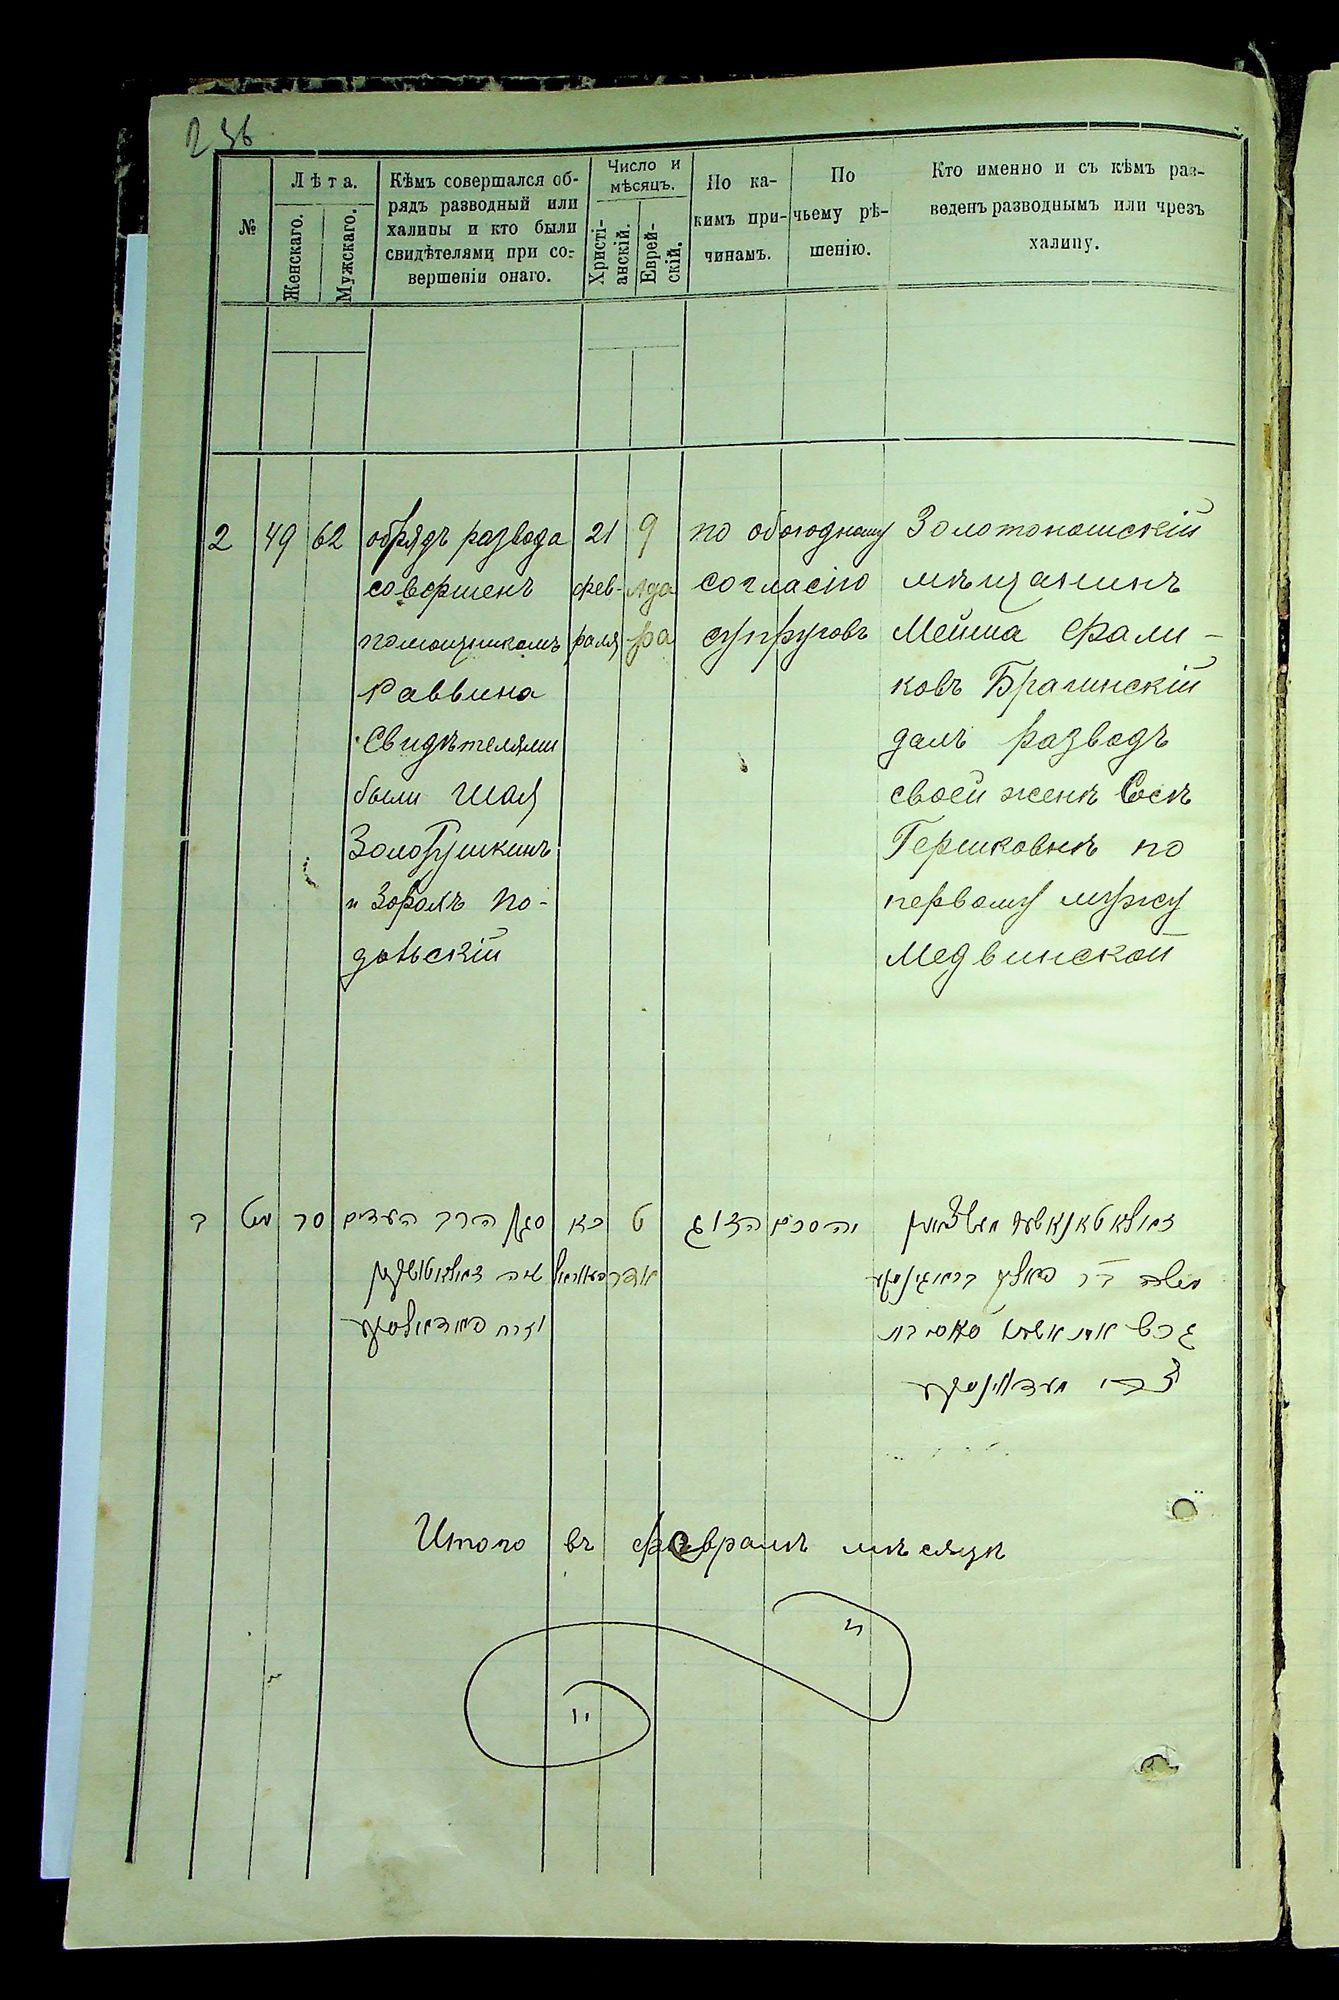 236
№
Лѣта.
Женскаго.
Мужскаго.
Кѣмъ совершался об-
рядъ разводный или
халицы и кто были
свидѣтелями при со-
вершеніи онаго.
Число и
мѣсяцъ.
Христі-
анскій.
Еврей-
скій.
По ка-
кимъ при-
чинамъ.
По
чьему рѣ-
шенію.
Кто именно и съ кѣмъ раз-
веденъ разводнымъ или чрезъ
халицу.
2
49
62
обрядъ развода
совершенъ
помощникомъ
Раввина
Свидѣтелями
были Шая
Золотушкинъ
и Зорахъ По-
дольскій
21
фев-
раля
9
Ада
ра
по обоюдному
согласію
супруговъ
Золотоношскій
мѣщанинъ
Мейша Фали-
ковъ Брагинскій
далъ разводъ
своей женѣ Сосѣ
Гершковнѣ по
первому мужу
Медвинской
ב
מט
סב
סגן הרב העדים
כא
ט
אדר
Итого въ февралѣ мѣсяцѣ